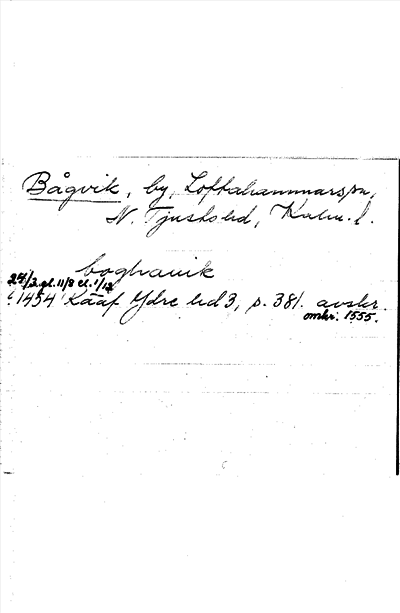 Bågvik, by, Loftahammars sn,
N. Tjusts hd, Kalm. l.
boghauik
24/2 el. 11/8 el. 1/12
1454 Kååf Ydre hd 3, s. 381. avskr.
omkr. 1555.